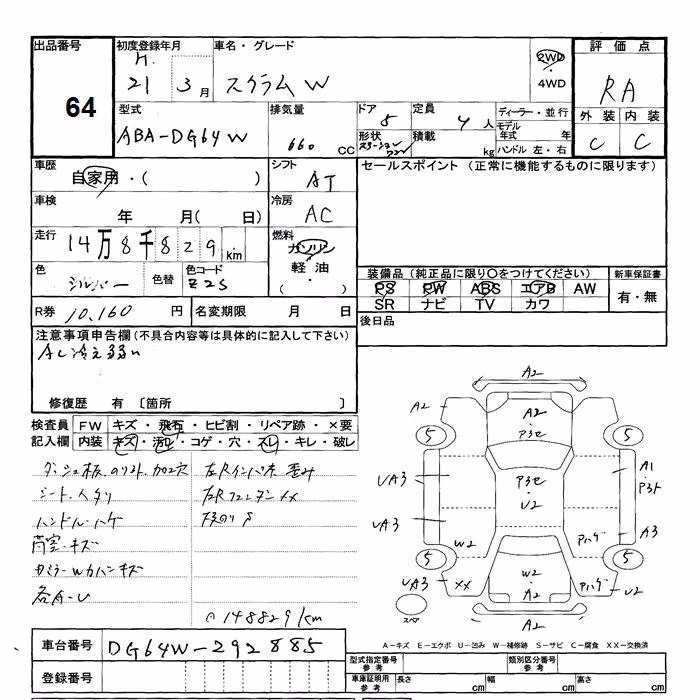 出品番号
64
初度登録年月
H.
21 3 月
車名・グレード
スクラムW
2WD
4WD
評価点
RA
型式
ABA-DG64W
排気量
660 CC
ドア
5
定員
4 人
形状
ステーションワゴン
積載
kg
ディーラー・並行
モデル年式 年
ハンドル 左・右
外装 内装
C C
車歴
自家用・( )
シフト
AT
セールスポイント (正常に機能するものに限ります)
車検
年 月( 日)
冷房
AC
走行
14万8千829km
燃料
ガソリン
軽油
色
シルバー
色替
色コード
Z2S
装備品(純正品に限り○をつけてください)
PS PW ABS エアB AW
SR ナビ TV カワ
新車保証書
有・無
R券 10,160 円
名変期限 月 日
後日品
注意事項申告欄(不具合内容等は具体的に記入して下さい)
AC冷え弱い
修復歴 有 〔箇所 〕
検査員記入欄
FW キズ・飛石・ヒビ割・リペア跡・×要
内装 キズ・汚れ・コゲ・穴・スレ・キレ・破レ
シート.ヘタリ
ハンドル.ハゲ
荷室.キズ
各A-U
148829km
A2
A2
A2
P3セ
5
5
A1
P3ト
UA3
P3セ
U2
UA3
A3
W2
Pハゲ
5
5
UA3
XX
W2
A2
Pハゲ
U2
スペア
A2
A－キズ E－エクボ U－凹み W－補修跡 S－サビ C－腐食 XX－交換済
車台番号 DG64W-292885
登録番号
型式指定番号
参考
類別区分番号
参考
車庫証明用
参考
長さ cm
幅 cm
高さ cm